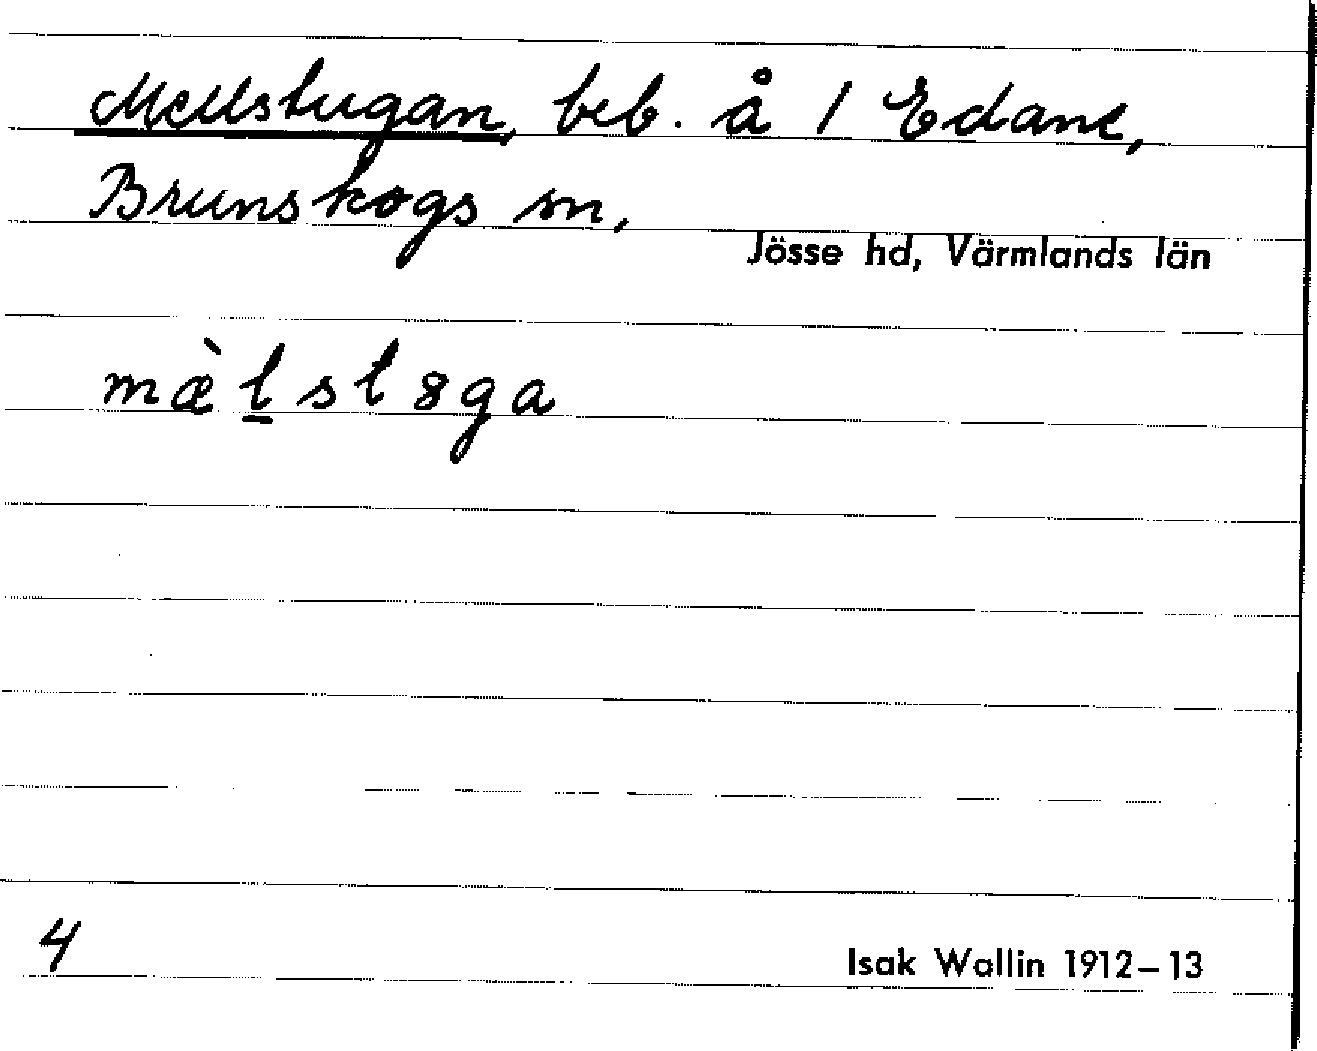 Mellstugan, beb. å 1 Edane,
Brunskogs sn,
Jösse hd, Värmlands län
mæ̀l̠stȣga
4
Isak Wallin 1912–13